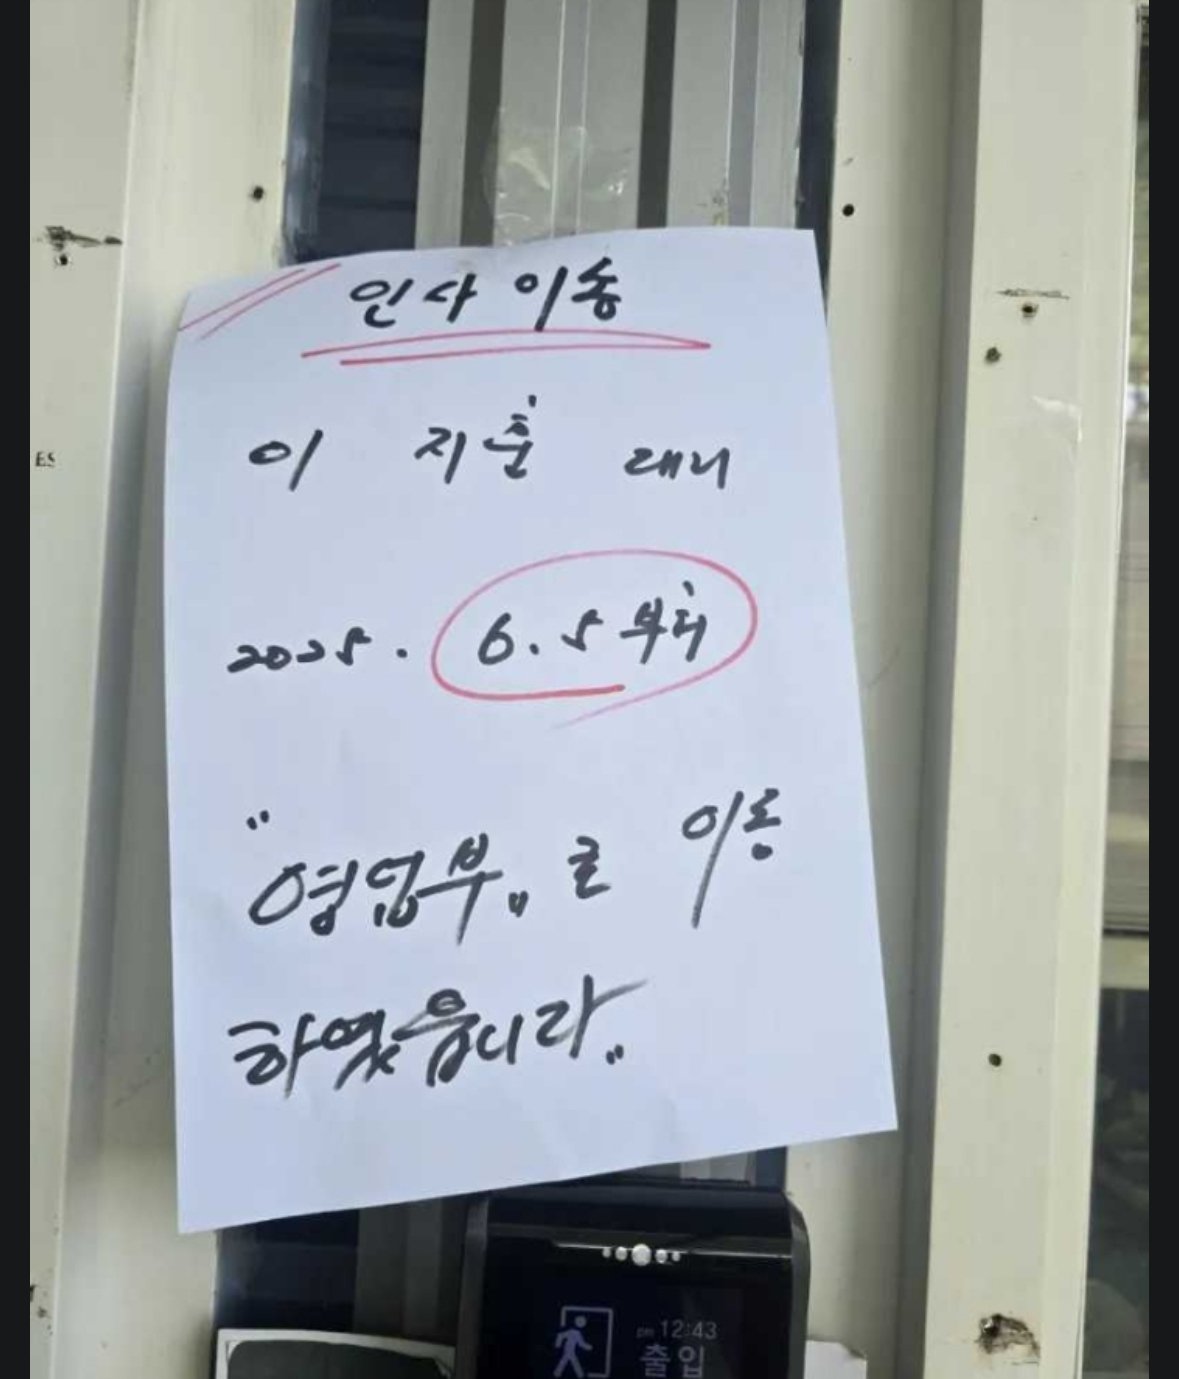 인사이송
이 지훈 대리
2025. 6.5부터
"영업부" 로 이동
하였읍니다"
ES
pm 12:43
출입